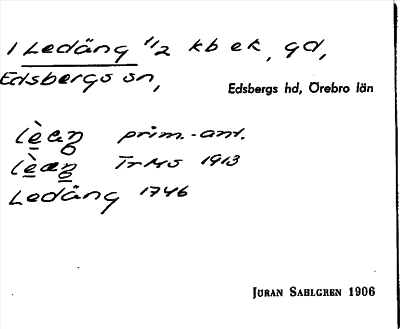 1 Ledäng 1/2 kb ek, gd,
Edsbergs sn,
Edsbergs hd, Örebro län
lèaŋ prim.-ant.
lèæŋ TrMs 1913
Ledäng 1746
JÖRAN SAHLGREN 1906